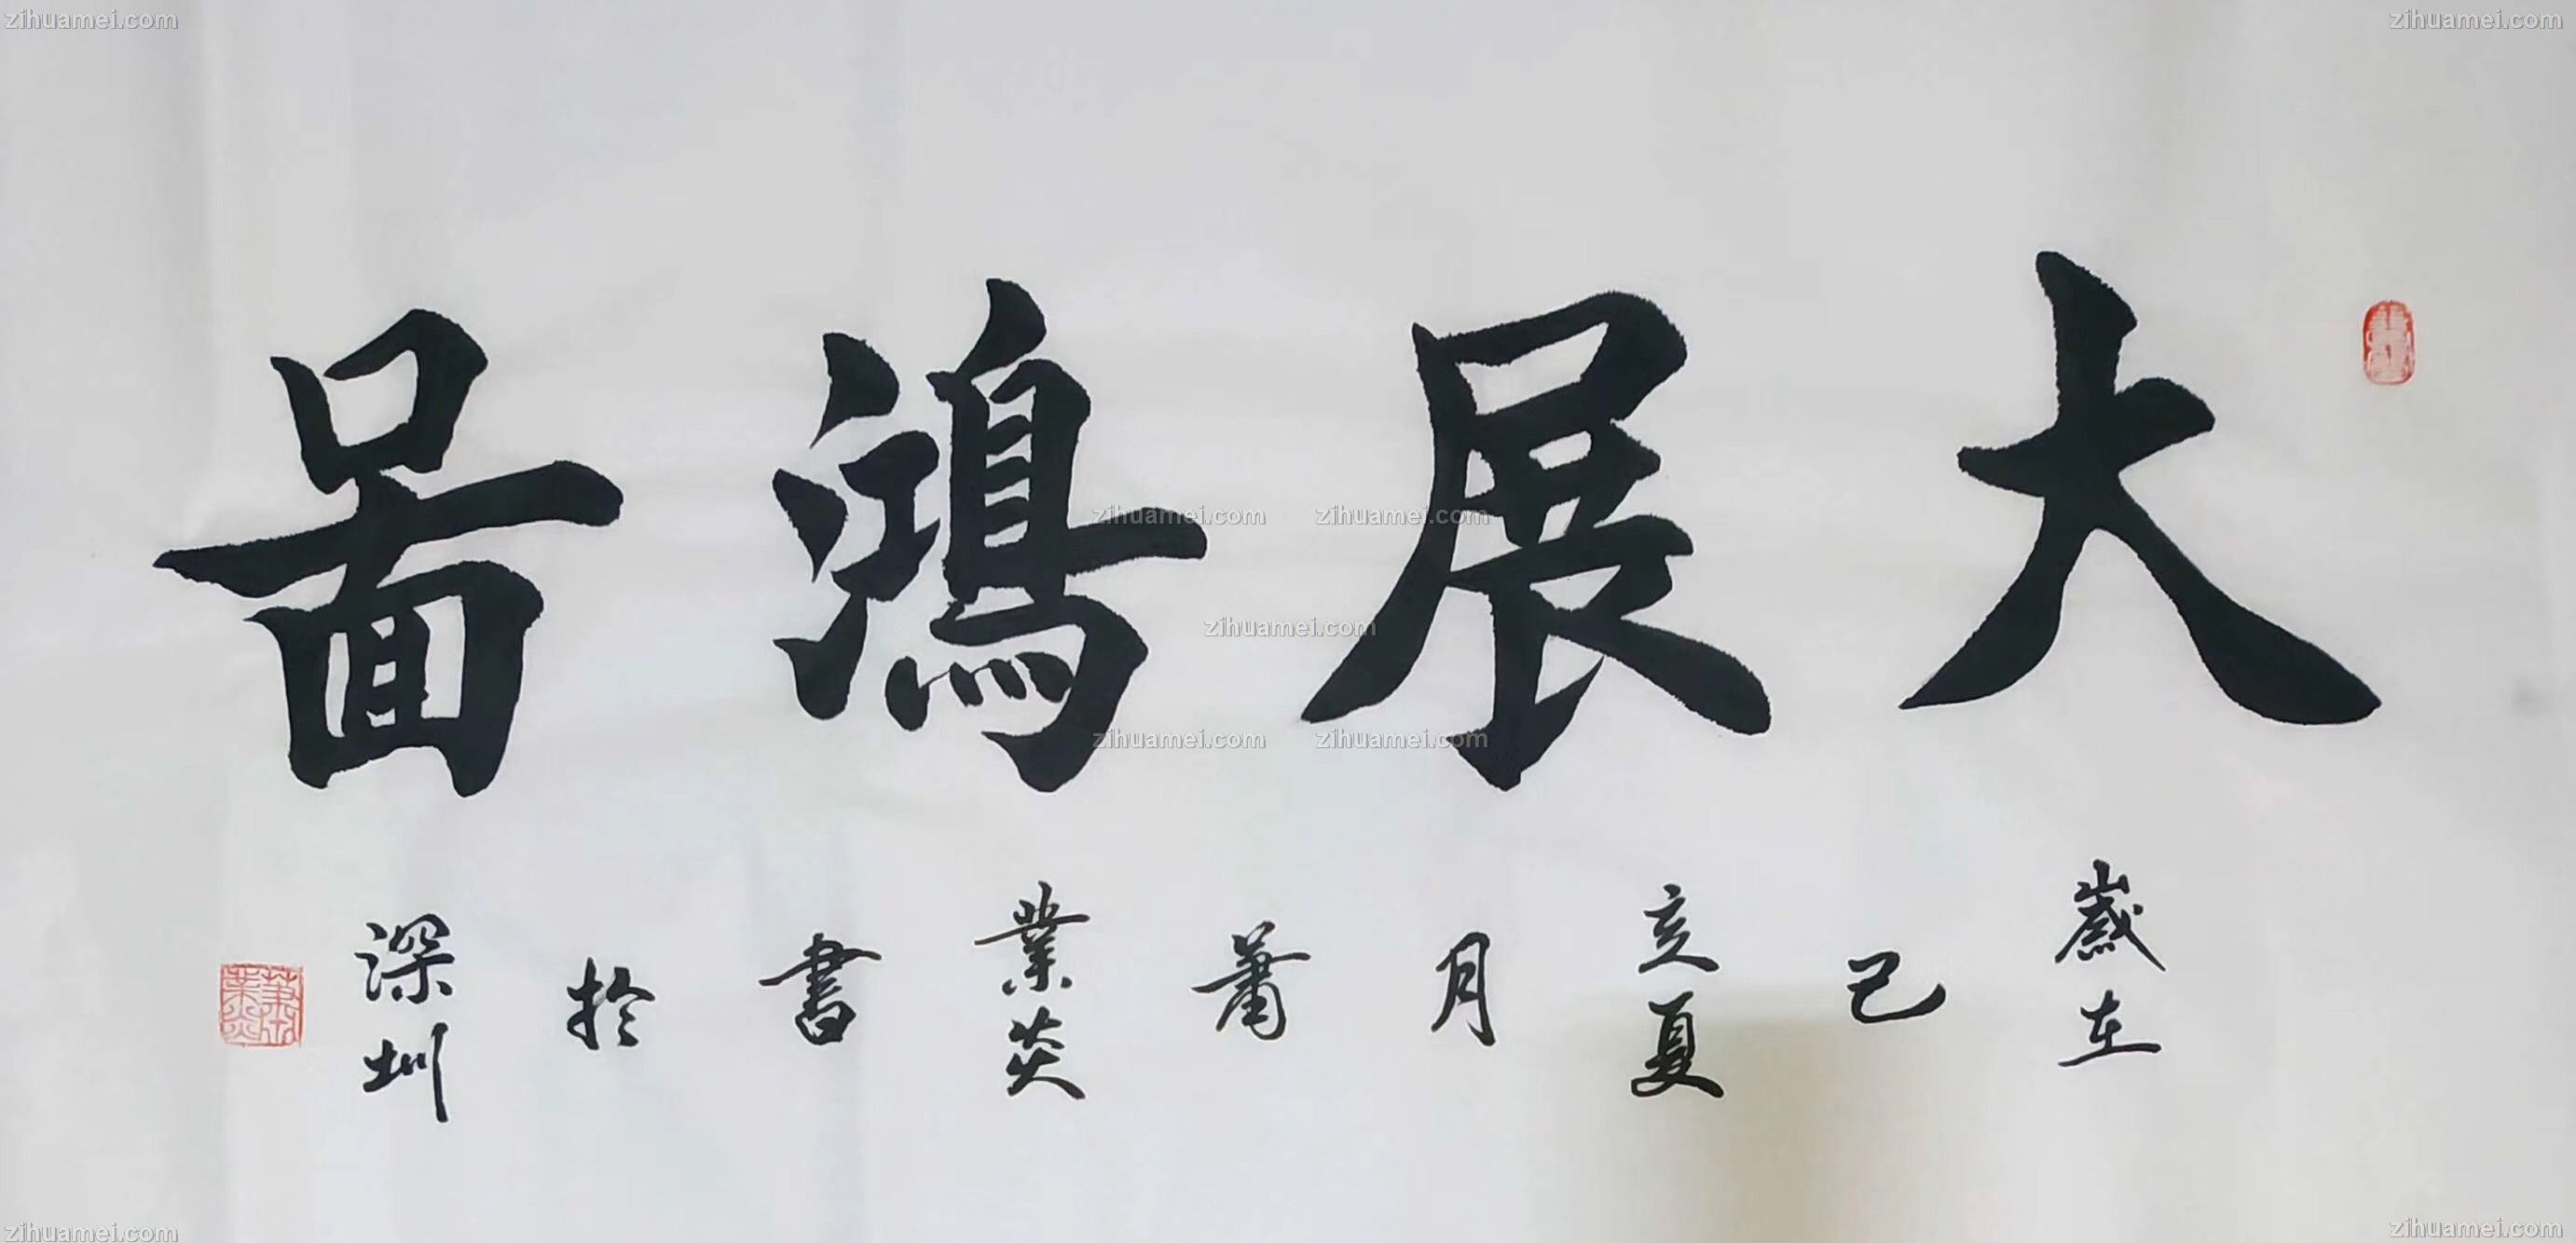 大展鴻啚
歲在己亥夏月蕭業炎書於深圳
蕭業炎
zihuamei.com
zihuamei.com
zihuamei.com
zihuamei.com
zihuamei.com
zihuamei.com
zihuamei.com
zihuamei.com
zihuamei.com